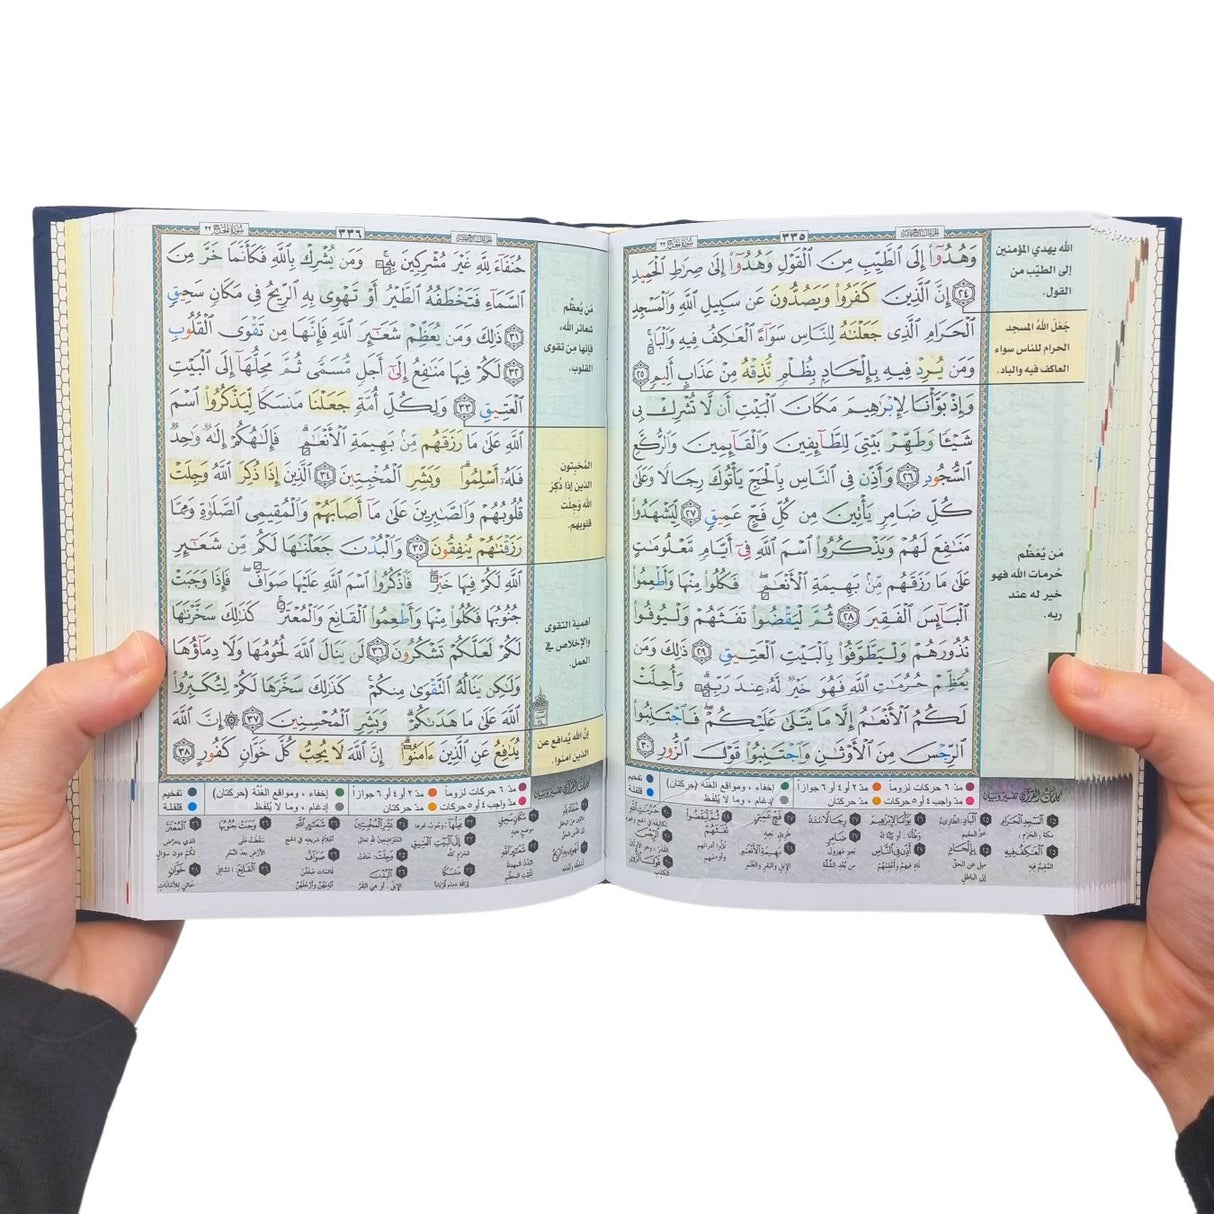 سورة الحج ٢٢
٣٣٥
وَهُدُوٓاْ إِلَى ٱلطَّيِّبِ مِنَ ٱلْقَوْلِ وَهُدُوٓاْ إِلَىٰ صِرَٰطِ ٱلْحَمِيدِ
٢٤ إِنَّ ٱلَّذِينَ كَفَرُواْ وَيَصُدُّونَ عَن سَبِيلِ ٱللَّهِ وَٱلْمَسْجِدِ
ٱلْحَرَامِ ٱلَّذِى جَعَلْنَٰهُ لِلنَّاسِ سَوَآءً ٱلْعَٰكِفُ فِيهِ وَٱلْبَادِ ۚ
وَمَن يُرِدْ فِيهِ بِإِلْحَادٍۭ بِظُلْمٍ نُّذِقْهُ مِنْ عَذَابٍ أَلِيمٍ ٢٥
وَإِذْ بَوَّأْنَا لِإِبْرَٰهِيمَ مَكَانَ ٱلْبَيْتِ أَن لَّا تُشْرِكْ بِى
شَيْـًٔا وَطَهِّرْ بَيْتِىَ لِلطَّآئِفِينَ وَٱلْقَآئِمِينَ وَٱلرُّكَّعِ
ٱلسُّجُودِ ٢٦ وَأَذِّن فِى ٱلنَّاسِ بِٱلْحَجِّ يَأْتُوكَ رِجَالًا وَعَلَىٰ
كُلِّ ضَامِرٍ يَأْتِينَ مِن كُلِّ فَجٍّ عَمِيقٍ ٢٧ لِّيَشْهَدُواْ
مَنَٰفِعَ لَهُمْ وَيَذْكُرُواْ ٱسْمَ ٱللَّهِ فِىٓ أَيَّامٍ مَّعْلُومَٰتٍ
عَلَىٰ مَا رَزَقَهُم مِّنۢ بَهِيمَةِ ٱلْأَنْعَٰمِ ۖ فَكُلُواْ مِنْهَا وَأَطْعِمُواْ
ٱلْبَآئِسَ ٱلْفَقِيرَ ٢٨ ثُمَّ لْيَقْضُواْ تَفَثَهُمْ وَلْيُوفُواْ
نُذُورَهُمْ وَلْيَطَّوَّفُواْ بِٱلْبَيْتِ ٱلْعَتِيقِ ٢٩ ذَٰلِكَ وَمَن
يُعَظِّمْ حُرُمَٰتِ ٱللَّهِ فَهُوَ خَيْرٌ لَّهُۥ عِندَ رَبِّهِۦ ۗ وَأُحِلَّتْ
لَكُمُ ٱلْأَنْعَٰمُ إِلَّا مَا يُتْلَىٰ عَلَيْكُمْ ۖ فَٱجْتَنِبُواْ
ٱلرِّجْسَ مِنَ ٱلْأَوْثَٰنِ وَٱجْتَنِبُواْ قَوْلَ ٱلزُّورِ ٣٠
الله يهدي المؤمنين
إلى الطيّب من
القول.
جَعَلَ اللهُ المسجد
الحرام للناس سواء
العاكف فيه والباد.
مَن يُعَظِّم
حُرمات الله فهو
خير له عند
ربه.
مدّ ٦ حركات لزوماً
مدّ ٢ أو ٤ أو ٦ جوازاً
إخفاء، ومواقع الغُنَّة (حركتان)
تفخيم
مدّ واجب ٤ أو ٥ حركات
مدّ حركتان
إدغام، وما لا يُلفَظ
قلقلة
سورة الحج ٢٢
٣٣٦
حُنَفَآءَ لِلَّهِ غَيْرَ مُشْرِكِينَ بِهِۦ ۚ وَمَن يُشْرِكْ بِٱللَّهِ فَكَأَنَّمَا خَرَّ مِنَ
ٱلسَّمَآءِ فَتَخْطَفُهُ ٱلطَّيْرُ أَوْ تَهْوِى بِهِ ٱلرِّيحُ فِى مَكَانٍ سَحِيقٍ
٣١ ذَٰلِكَ وَمَن يُعَظِّمْ شَعَٰٓئِرَ ٱللَّهِ فَإِنَّهَا مِن تَقْوَى ٱلْقُلُوبِ
٣٢ لَكُمْ فِيهَا مَنَٰفِعُ إِلَىٰٓ أَجَلٍ مُّسَمًّى ثُمَّ مَحِلُّهَآ إِلَى ٱلْبَيْتِ
ٱلْعَتِيقِ ٣٣ وَلِكُلِّ أُمَّةٍ جَعَلْنَا مَنسَكًا لِّيَذْكُرُواْ ٱسْمَ
ٱللَّهِ عَلَىٰ مَا رَزَقَهُم مِّنۢ بَهِيمَةِ ٱلْأَنْعَٰمِ ۗ فَإِلَٰهُكُمْ إِلَٰهٌ وَٰحِدٌ
فَلَهُۥٓ أَسْلِمُواْ ۗ وَبَشِّرِ ٱلْمُخْبِتِينَ ٣٤ ٱلَّذِينَ إِذَا ذُكِرَ ٱللَّهُ وَجِلَتْ
قُلُوبُهُمْ وَٱلصَّٰبِرِينَ عَلَىٰ مَآ أَصَابَهُمْ وَٱلْمُقِيمِى ٱلصَّلَوٰةِ وَمِمَّا
رَزَقْنَٰهُمْ يُنفِقُونَ ٣٥ وَٱلْبُدْنَ جَعَلْنَٰهَا لَكُم مِّن شَعَٰٓئِرِ
ٱللَّهِ لَكُمْ فِيهَا خَيْرٌ ۖ فَٱذْكُرُواْ ٱسْمَ ٱللَّهِ عَلَيْهَا صَوَآفَّ ۖ فَإِذَا وَجَبَتْ
جُنُوبُهَا فَكُلُواْ مِنْهَا وَأَطْعِمُواْ ٱلْقَانِعَ وَٱلْمُعْتَرَّ ۚ كَذَٰلِكَ سَخَّرْنَٰهَا
لَكُمْ لَعَلَّكُمْ تَشْكُرُونَ ٣٦ لَن يَنَالَ ٱللَّهَ لُحُومُهَا وَلَا دِمَآؤُهَا
وَلَٰكِن يَنَالُهُ ٱلتَّقْوَىٰ مِنكُمْ ۚ كَذَٰلِكَ سَخَّرَهَا لَكُمْ لِتُكَبِّرُواْ
ٱللَّهَ عَلَىٰ مَا هَدَىٰكُمْ ۗ وَبَشِّرِ ٱلْمُحْسِنِينَ ٣٧ ۞ إِنَّ ٱللَّهَ
يُدَٰفِعُ عَنِ ٱلَّذِينَ ءَامَنُوٓاْ ۗ إِنَّ ٱللَّهَ لَا يُحِبُّ كُلَّ خَوَّانٍ كَفُورٍ ٣٨
مَن يُعَظِّم
شعائر الله،
فإنها من تقوى
القلوب.
المُخبِتون
الذين إذا ذُكِرَ
الله وَجِلَت
قلوبهم.
أهمية التقوى
والإخلاص في
العمل.
إنَّ الله يُدافع عن
الذين آمنوا.
مدّ ٦ حركات لزوماً
مدّ ٢ أو ٤ أو ٦ جوازاً
إخفاء، ومواقع الغُنَّة (حركتان)
تفخيم
مدّ واجب ٤ أو ٥ حركات
مدّ حركتان
إدغام، وما لا يُلفَظ
قلقلة